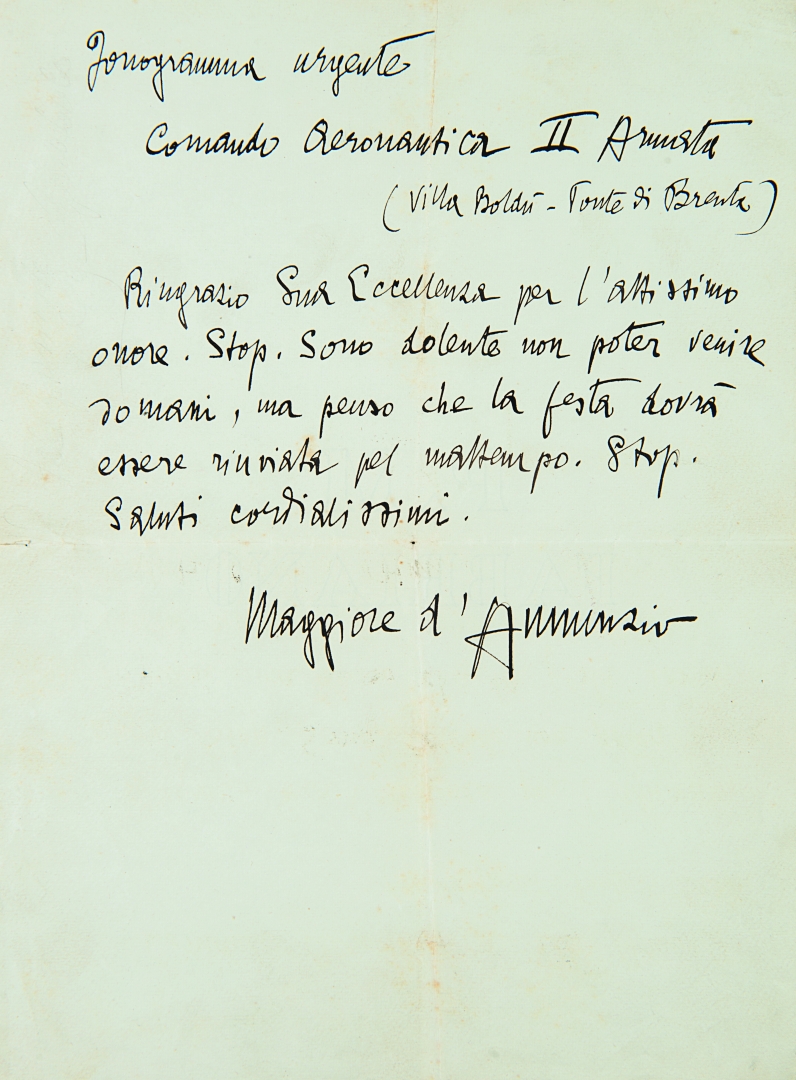 Fonogramma urgente
Comando Aeronautica II Armata
(Villa Boldù - Ponte di Brenta)
Ringrazio Sua Eccellenza per l'altissimo
onore. Stop. Sono dolente non poter venire
domani, ma penso che la festa dovrà
essere rinviata pel maltempo. Stop.
Saluti cordialissimi.
Maggiore d'Annunzio